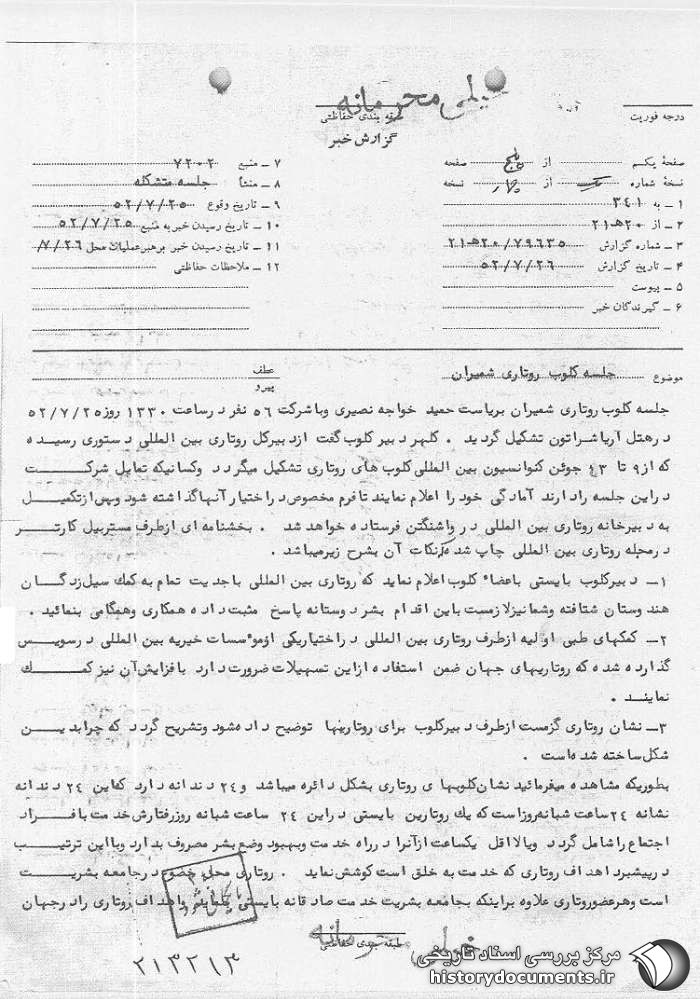 خیلی محرمانه
درجه فوریت
طبقه بندی حفاظتی
گزارش خبر
صفحهٔ یکم از پنج صفحه
نسخهٔ شماره یک از چهار نسخه
۱ ـ به ۳۴۱
۲ ـ از ۲۰هـ۲۱
۳ ـ شماره گزارش ۲۰/۷۹۶۳۵هـ۲۱
۴ ـ تاریخ گزارش ۵۲/۷/۲۶
۵ ـ پیوست
۶ ـ گیرندگان خبر
۷ ـ منبع ۷۲۰۲
۸ ـ منشأ جلسه متشکله
۹ ـ تاریخ وقوع ۵۲/۷/۲۵
۱۰ ـ تاریخ رسیدن خبر به منبع ۵۲/۷/۲۵
۱۱ ـ تاریخ رسیدن خبر برهبر عملیات محل ۷/۲۶/
۱۲ ـ ملاحظات حفاظتی
موضوع جلسه کلوب روتاری شمیران
عطف
پیرو
جلسه کلوب روتاری شمیران بریاست حمید خواجه نصیری وباشرکت ۵۶ نفر درساعت ۱۳۳۰ روز ۵۲/۷/۲۵
درهتل آریاشراتون تشکیل گردید . کلهر دبیر کلوب گفت ازدبیرکل روتاری بین المللی دستوری رسیده
که از۹ تا ۱۳ جوئن کنوانسیون بین المللی کلوب های روتاری تشکیل میگردد وکسانیکه تمایل شرکت
دراین جلسه رادارند آمادگی خود را اعلام نمایند تافرم مخصوص دراختیارآنهاگذاشته شود وپس ازتکمیل
به دبیرخانه روتاری بین المللی در واشنگتن فرستاده خواهد شد . بخشنامه ای ازطرف مستربیل کارتر
درمجله روتاری بین المللی چاپ شده که نکات آن بشرح زیرمیباشد .
۱ـ دبیرکلوب بایستی باعضاء کلوب اعلام نماید که روتاری بین المللی باجدیت تمام به کمك سیل زدگان
هندوستان شتافته وشمانیزلازمست باین اقدام بشردوستانه پاسخ مثبت داده همکاری وهمگامی بنمائید .
۲ـ کمکهای طبی اولیه ازطرف روتاری بین المللی دراختیاریکی ازموسسات خیریه بین المللی درسویس
گذارده شده که روتاریهای جهان ضمن استفاده ازاین تسهیلات ضرورت دارد بافزایش آن نیز کمك
نمایند .
۳ـ نشان روتاری گزمست ازطرف دبیرکلوب برای روتارینها توضیح داده شود وتشریح گردد که چرابدین
شکل ساخته شده است .
بطوریکه مشاهده میفرمائید نشان کلوبهای روتاری بشکل دائره میباشد و۲۴ دندانه دارد که این ۲۴ دندانه
نشانه ۲۴ ساعت شبانه روزاست که یك روتارین بایستی دراین ۲۴ ساعت شبانه روزرفتارش خدمت بافراد
اجتماع راشامل گردد ویالااقل یکساعت ازآنرا درراه خدمت وبهبود وضع بشر مصروف بدارد وبااین ترتیب
درپیشبرد اهداف روتاری که خدمت به خلق است کوشش نماید . روتاری محل حضور درجامعه بشریت
است وهرعضوروتاری علاوه براینکه بجامعه بشریت خدمت صادقانه بایستی بنماید واهداف روتاری رادرجهان
بایگانی شود
طبقه بندی حفاظتی
خیلی محرمانه
۲۱۳۲۱۳
مرکز بررسی اسناد تاریخی
historydocuments.ir